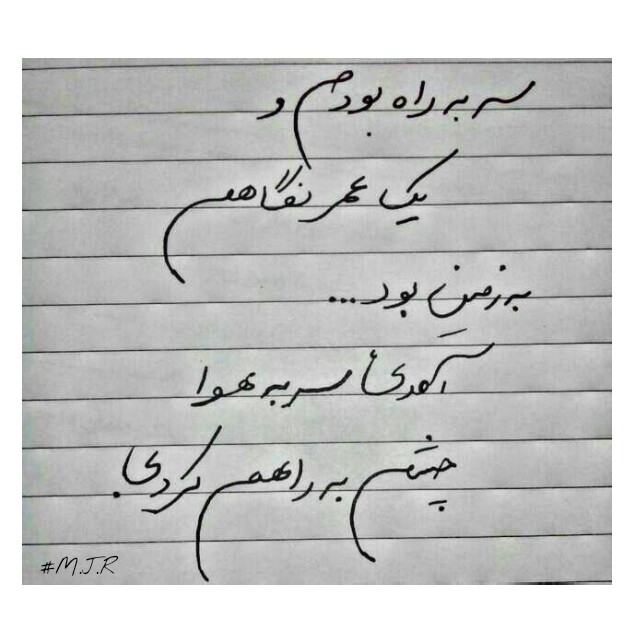 سر به راه بودم و
یک عمر نگاهم
به زمین بود...
آمدی سر به هوا
چشم به راهم کردی
#M.J.R